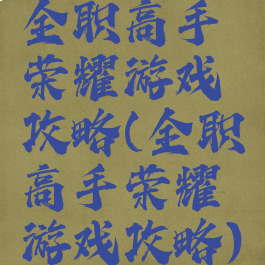 全职高手
荣耀游戏
攻略(全职
高手荣耀
游戏攻略)